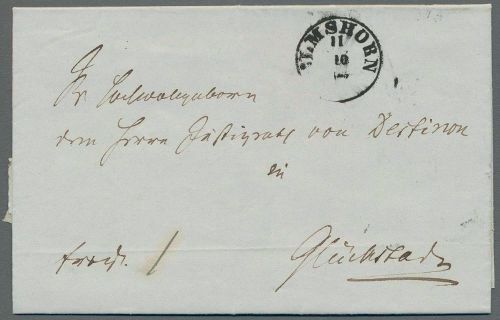 ELMSHORN
11
10
Sr Hochwohlgeborn
dem Herrn Justizrath von Destinon
in
Glückstadt